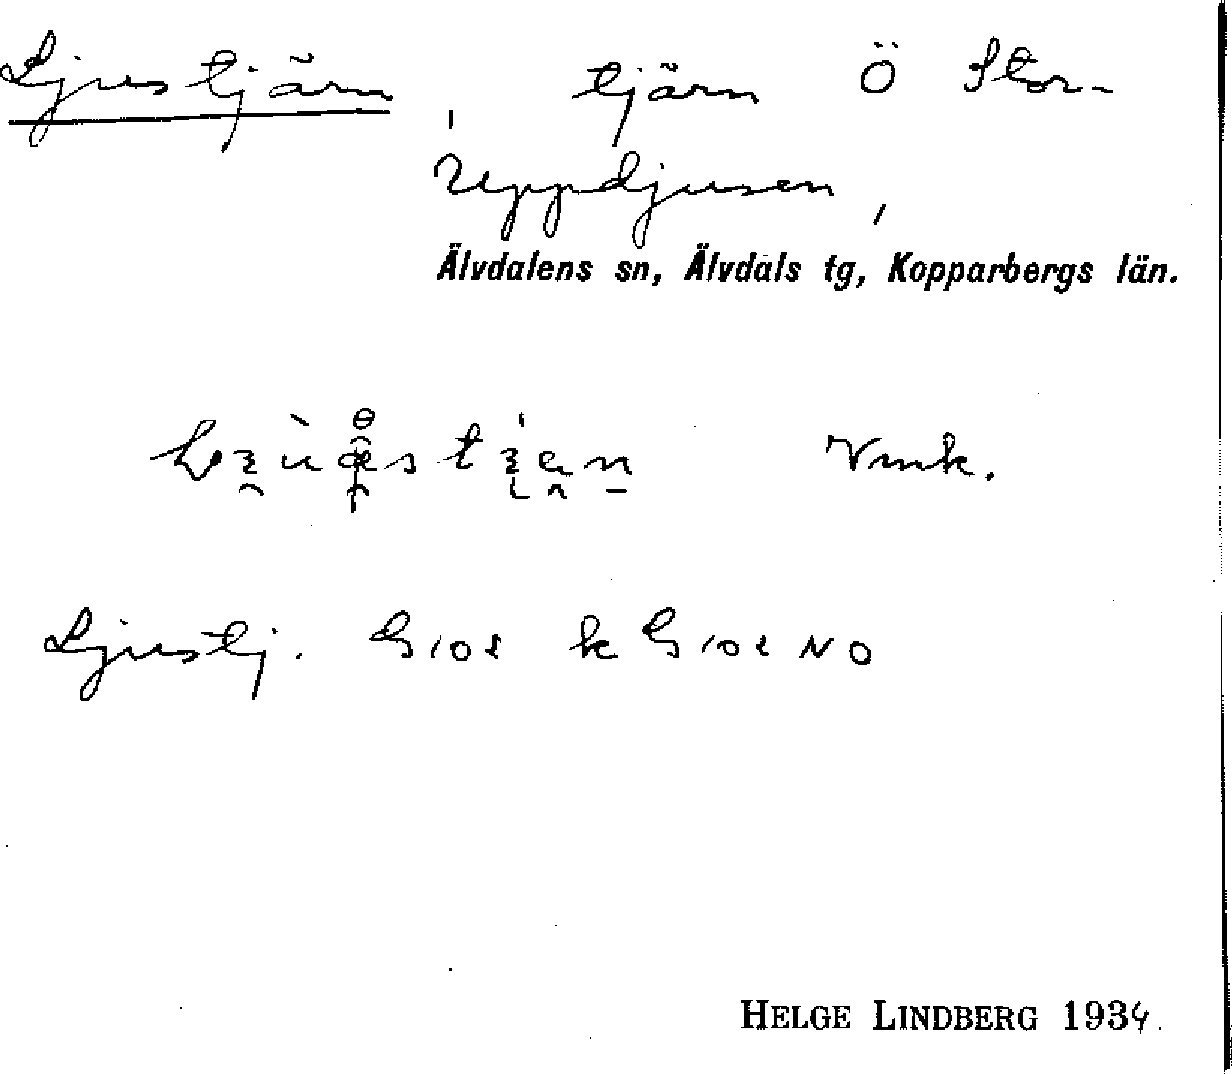 Ljustjärn, tjärn Ö Stor-
Uppdjusen,
Älvdalens sn, Älvdals tg, Kopparbergs län.
Vmk.
Ljustj. G108 k G108 NO
HELGE LINDBERG 1934.